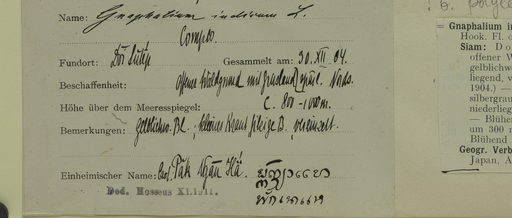 Name: Gnaphalium indicum L.
Compos.
Fundort: Doi Sutep Gesammelt am: 30. XII 04.
Beschaffenheit: offener Waldgrund mit
Höhe über dem Meeresspiegel: c. 800-1000 m.
Bemerkungen: gelblichw. Bl., kleines Kraut vereinzelt.
Einheimischer Name: Pak
Ded. Hosseus XI.1911.
b. polyce
= Gnaphalium in
Hook. Fl. o
Siam: Do
offener W
gelblichwe
liegend, v
1904.) —
silbergrau
niederlieg
— Blühen
um 300 m
Blühend
Geogr. Verb
Japan, A